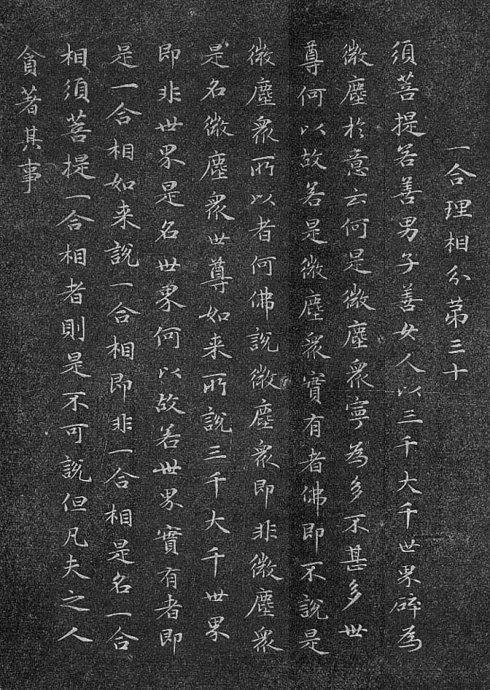 一合理相分第三十
須菩提若善男子善女人以三千大千世界碎為
微塵於意云何是微塵眾寧為多不甚多世
尊何以故若是微塵眾實有者佛即不說是
微塵眾所以者何佛說微塵眾即非微塵眾
是名微塵眾世尊如来所說三千大千世界
即非世界是名世界何以故若世界實有者即
是一合相如来說一合相即非一合相是名一合
相須菩提一合相者則是不可說但凡夫之人
貪著其事